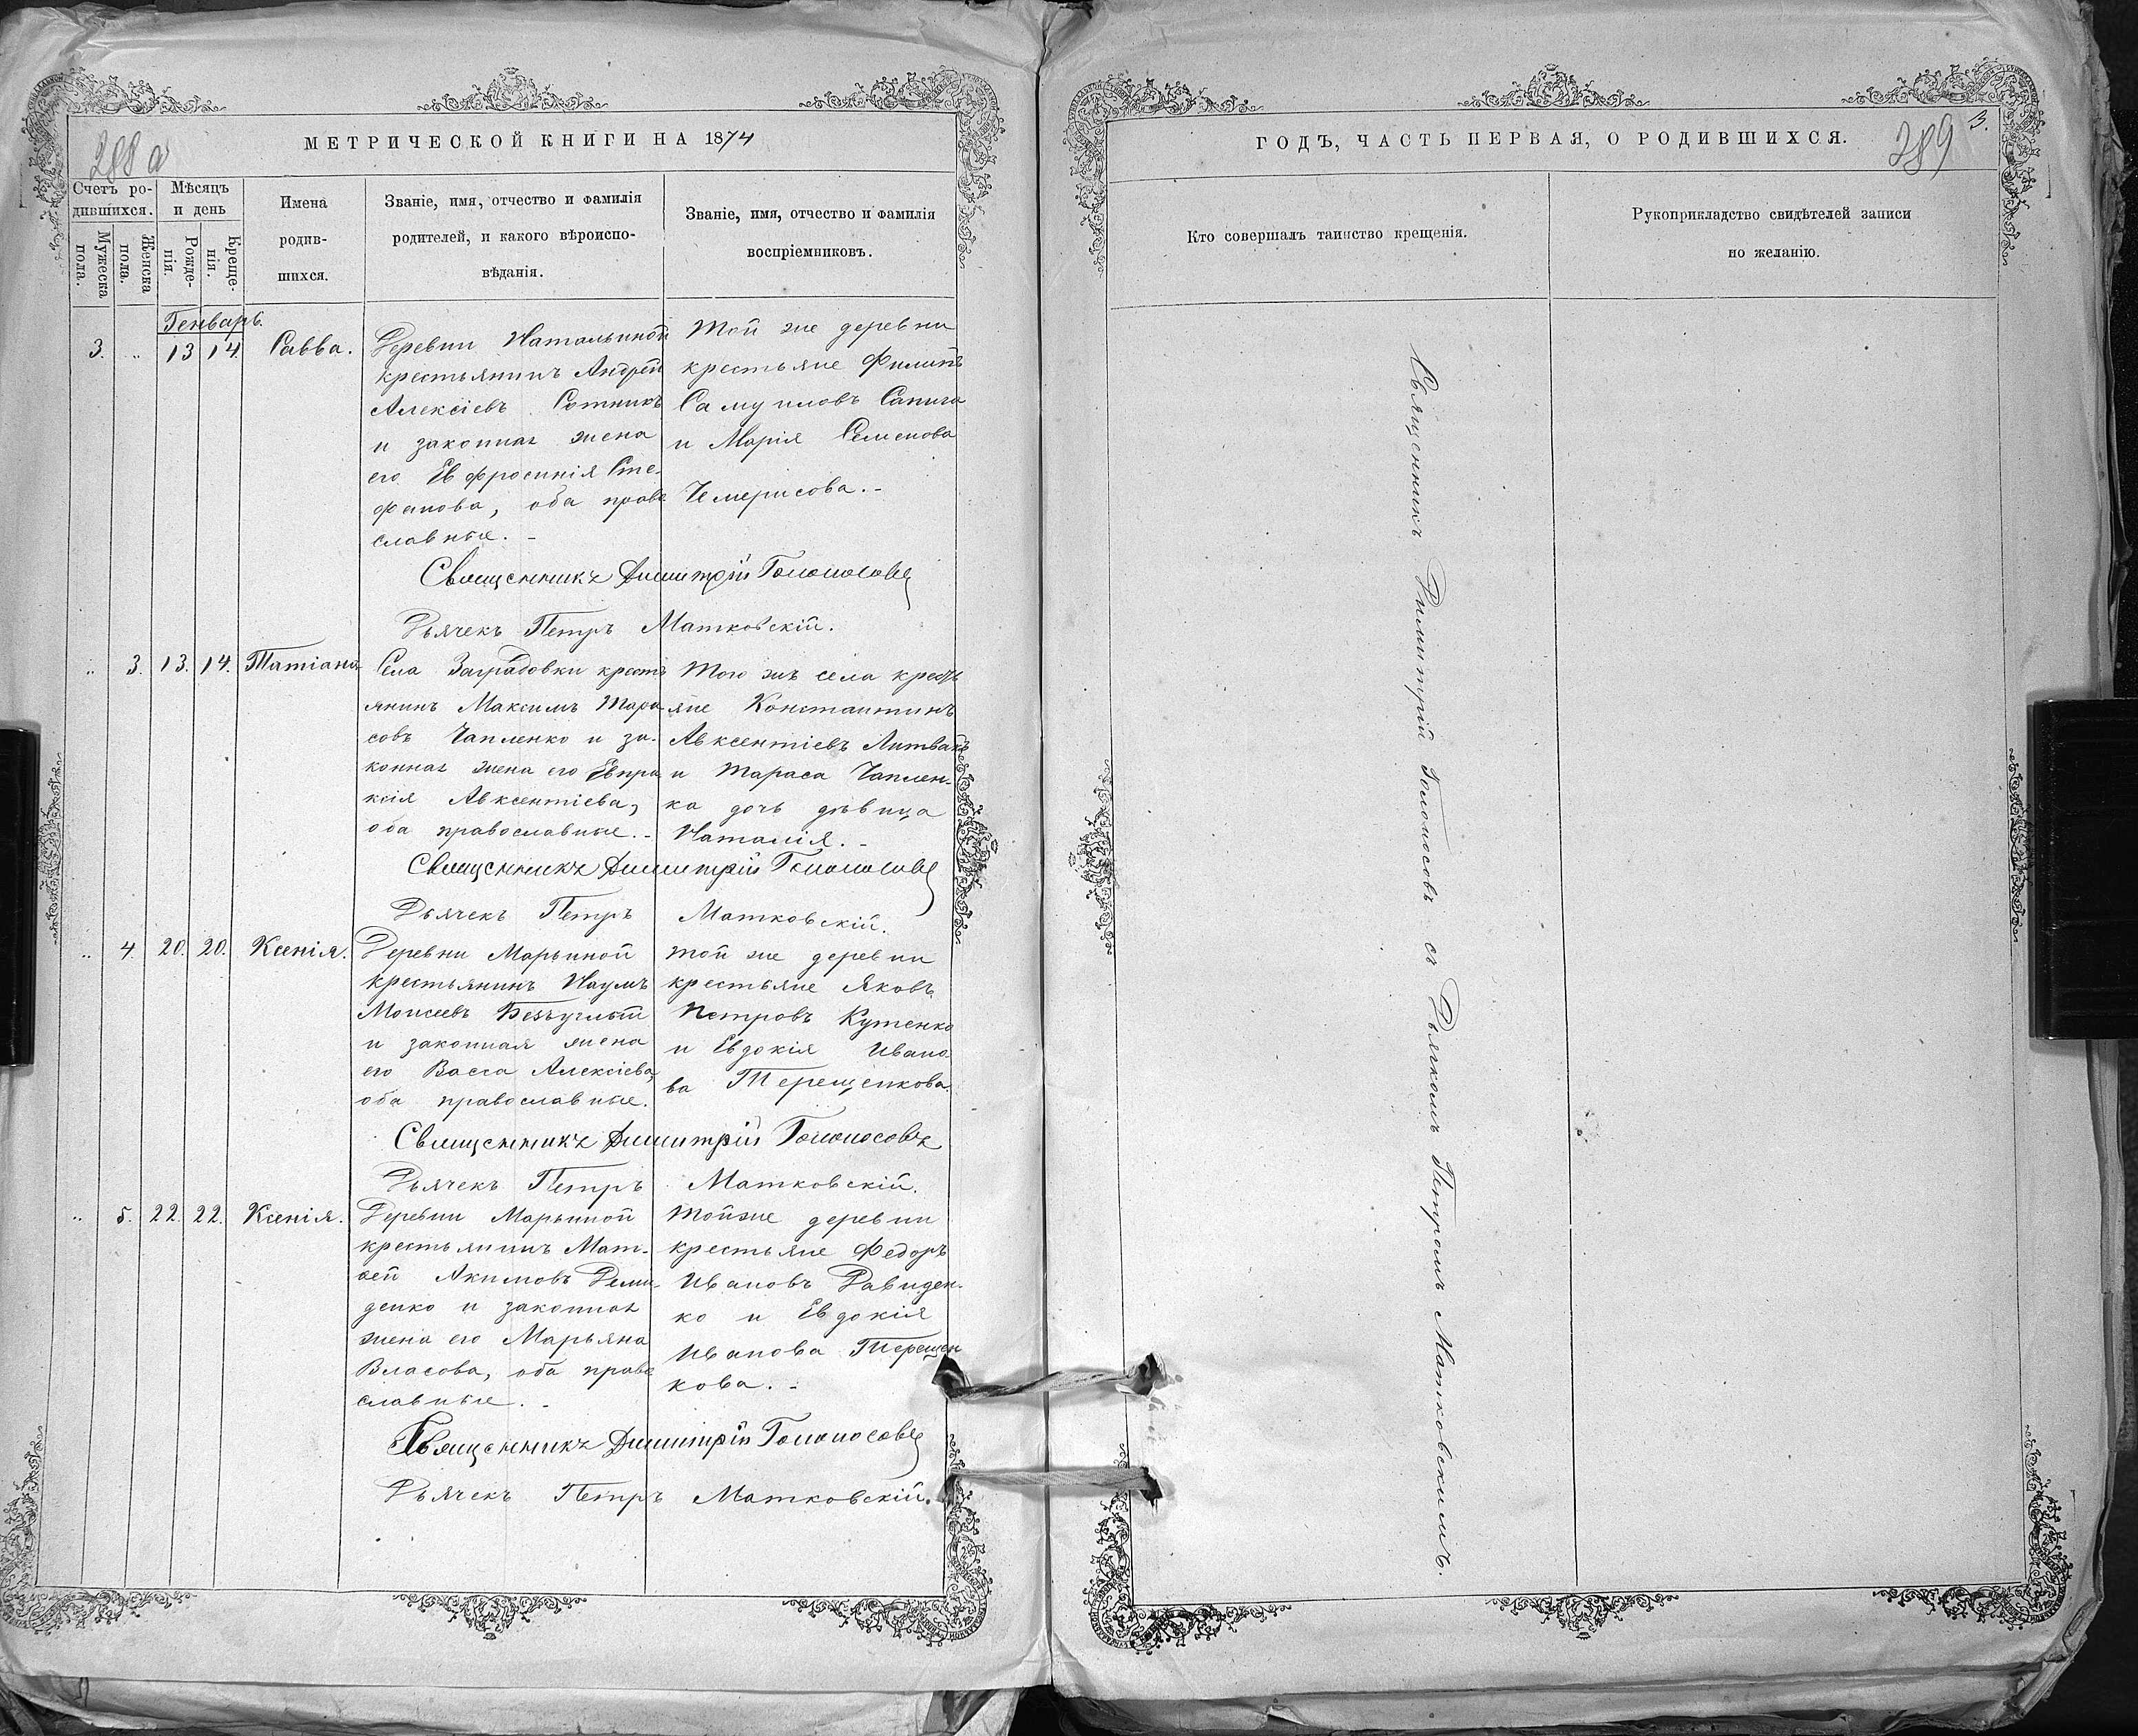 МЕТРИЧЕСКОЙ КНИГИ НА 1874
288 а
Счетъ ро-
дившихся.
Мужеска
пола.
Женска
пола.
Мѣсяцъ
и день
Рожде-
нія.
Креще-
нія.
Имена
родив-
шихся.
Званіе, имя, отчество и фамилія
родителей, и какого вѣроиспо-
вѣданія.
Званіе, имя, отчество и фамилія
воспріемниковъ.
Генварь.
3. „ 13 14. Савва.
Деревни Натальиной
крестьянинъ Андрей
Алексіевъ Сотникъ
и законная жена
его Евфросинія Сте-
фанова, оба право
славные. -
Той же деревни
крестьяне Филипъ
Самуиловъ Сапига
и Марія Семенова
Чемерисова. -
Священникъ Димитрій Голоносовъ
Дьячекъ Петръ Матковскій.
„ 3. 13. 14. Татіана
Села Заградовки кресть
янинъ Максимъ Тара
совъ Чапленко и за-
конная жена его Евпра
ксія Авксентіева,
оба православные. -
Того жъ села кресть
яне Константинъ
Авксентіевъ Литвакъ
и Тараса Чаплен-
ка дочь дѣвица
Наталія. -
Священникъ Димитрій Голоносовъ
Дьячекъ Петръ Матковскій.
„ 4. 20. 20. Ксенія.
Деревни Марьиной
крестьянинъ Наумъ
Моисеевъ Безъуглый
и законная жена
его Васса Алексіева,
оба православные.
Той же деревни
крестьяне Яковъ
Петровъ Кутенко
и Евдокія Ивано
ва Терещенкова.
Священникъ Димитрій Голоносовъ
Дьячекъ Петръ Матковскій.
„ 5. 22. 22. Ксенія.
Деревни Марьиной
крестьянинъ Мат-
ѳей Акимовъ Деми-
денко и законная
жена его Марьяна
Власова, оба право
славные. -
Тойже деревни
крестьяне Федоръ
Ивановъ Давиден-
ко и Евдокія
Иванова Терещен
кова. -
Священникъ Димитрій Голоносовъ
Дьячекъ Петръ Матковскій.
ГОДЪ, ЧАСТЬ ПЕРВАЯ, О РОДИВШИХСЯ.
3.
289
Кто совершалъ таинство крещенія.
Рукоприкладство свидѣтелей записи
по желанію.
Священникъ Димитрій Голоносовъ съ Дьячкомъ Петромъ Матковскимъ.